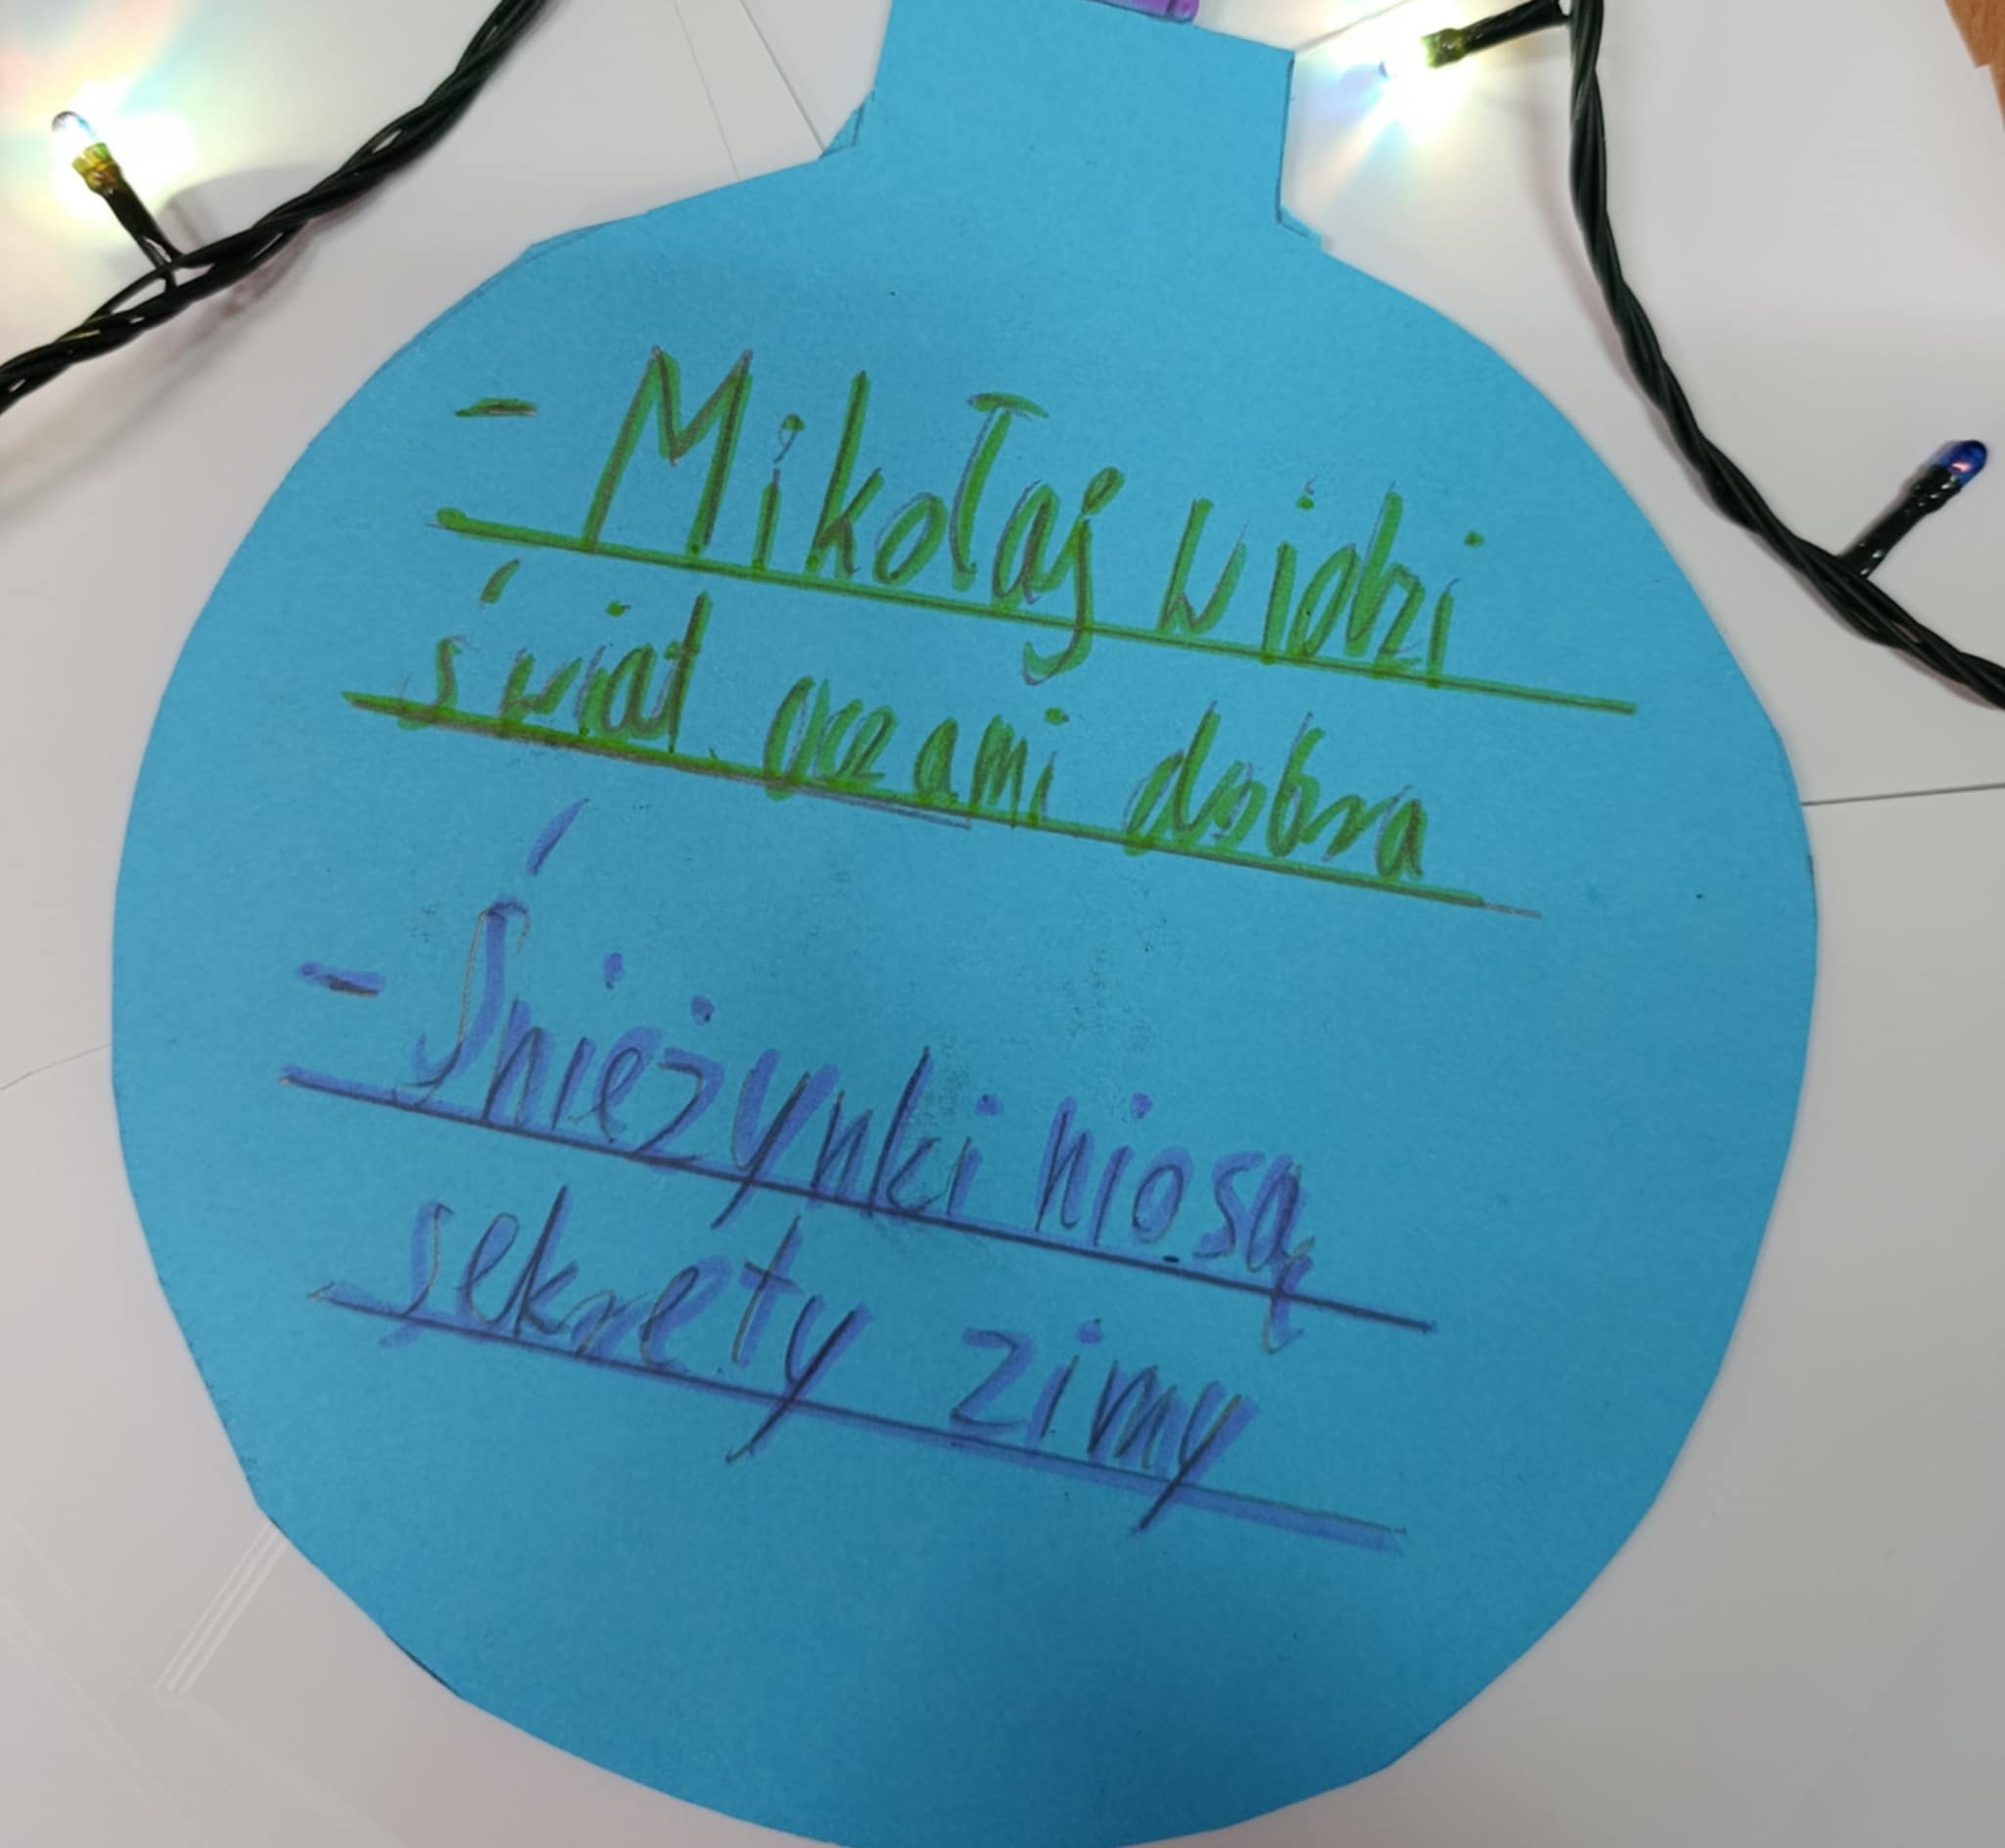 - Mikołaj widzi
świat oczami dobra
- Śnieżynki niosą
sekrety zimy